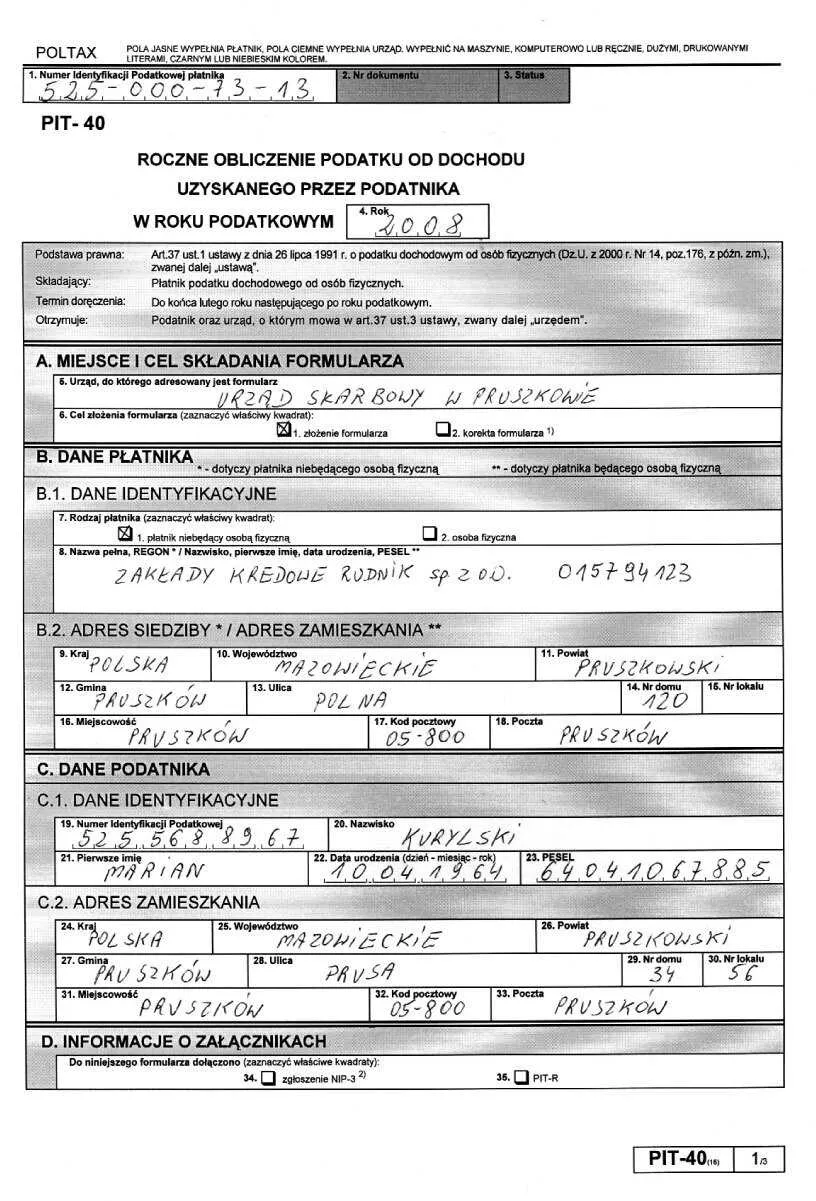 POLTAX
POLA JASNE WYPEŁNIA PŁATNIK, POLA CIEMNE WYPEŁNIA URZĄD. WYPEŁNIĆ NA MASZYNIE, KOMPUTEROWO LUB RĘCZNIE, DUŻYMI, DRUKOWANYMI
LITERAMI, CZARNYM LUB NIEBIESKIM KOLOREM.
1. Numer Identyfikacji Podatkowej płatnika 2. Nr dokumentu 3. Status
525-000-73-13
PIT- 40
ROCZNE OBLICZENIE PODATKU OD DOCHODU
UZYSKANEGO PRZEZ PODATNIKA
W ROKU PODATKOWYM
4. Rok
2008
Podstawa prawna: Art.37 ust.1 ustawy z dnia 26 lipca 1991 r. o podatku dochodowym od osób fizycznych (Dz.U. z 2000 r. Nr 14, poz.176, z późn. zm.),
zwanej dalej „ustawą”.
Składający: Płatnik podatku dochodowego od osób fizycznych.
Termin doręczenia: Do końca lutego roku następującego po roku podatkowym.
Otrzymuje: Podatnik oraz urząd, o którym mowa w art.37 ust.3 ustawy, zwany dalej „urzędem”.
A. MIEJSCE I CEL SKŁADANIA FORMULARZA
5. Urząd, do którego adresowany jest formularz
URZĄD SKARBOWY W PRUSZKOWIE
6. Cel złożenia formularza (zaznaczyć właściwy kwadrat):
1. złożenie formularza 2. korekta formularza 1)
B. DANE PŁATNIKA
* - dotyczy płatnika niebędącego osobą fizyczną ** - dotyczy płatnika będącego osobą fizyczną
B.1. DANE IDENTYFIKACYJNE
7. Rodzaj płatnika (zaznaczyć właściwy kwadrat):
1. płatnik niebędący osobą fizyczną 2. osoba fizyczna
8. Nazwa pełna, REGON * / Nazwisko, pierwsze imię, data urodzenia, PESEL **
ZAKŁADY KREDOWE RUDNIK sp. z o.o. 015794123
B.2. ADRES SIEDZIBY * / ADRES ZAMIESZKANIA **
9. Kraj 10. Województwo 11. Powiat
POLSKA MAZOWIECKIE PRUSZKOWSKI
12. Gmina 13. Ulica 14. Nr domu 15. Nr lokalu
PRUSZKÓW POLNA 120
16. Miejscowość 17. Kod pocztowy 18. Poczta
PRUSZKÓW 05-800 PRUSZKÓW
C. DANE PODATNIKA
C.1. DANE IDENTYFIKACYJNE
19. Numer Identyfikacji Podatkowej 20. Nazwisko
5255688967 KURYLSKI
21. Pierwsze imię 22. Data urodzenia (dzień - miesiąc - rok) 23. PESEL
MARIAN 10041964 64041067885
C.2. ADRES ZAMIESZKANIA
24. Kraj 25. Województwo 26. Powiat
POLSKA MAZOWIECKIE PRUSZKOWSKI
27. Gmina 28. Ulica 29. Nr domu 30. Nr lokalu
PRUSZKÓW PRUSA 34 56
31. Miejscowość 32. Kod pocztowy 33. Poczta
PRUSZKÓW 05-800 PRUSZKÓW
D. INFORMACJE O ZAŁĄCZNIKACH
Do niniejszego formularza dołączono (zaznaczyć właściwe kwadraty):
34. zgłoszenie NIP-3 2) 35. PIT-R
PIT-40(15) 1/3